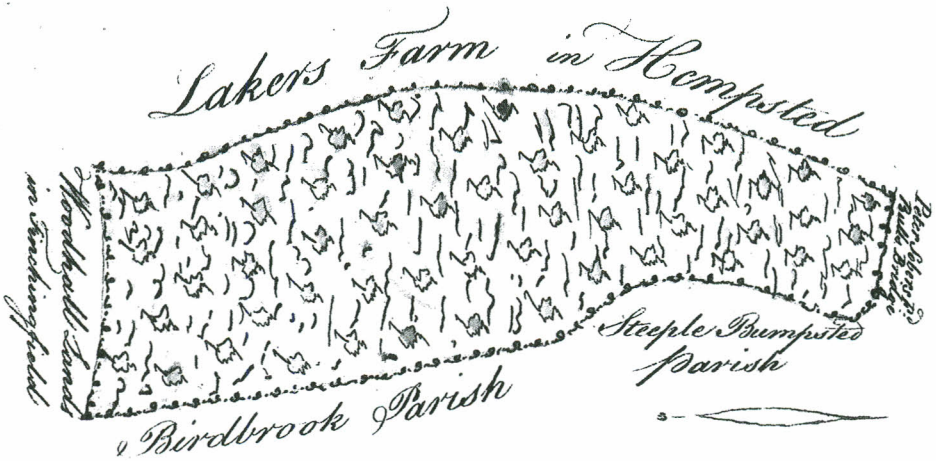 Lakers Farm in Hempsted
Woodhall Lands
in Finchingfield
Bull Bridge
Steeple Bumpsted
Parish
Birdbrook Parish
S